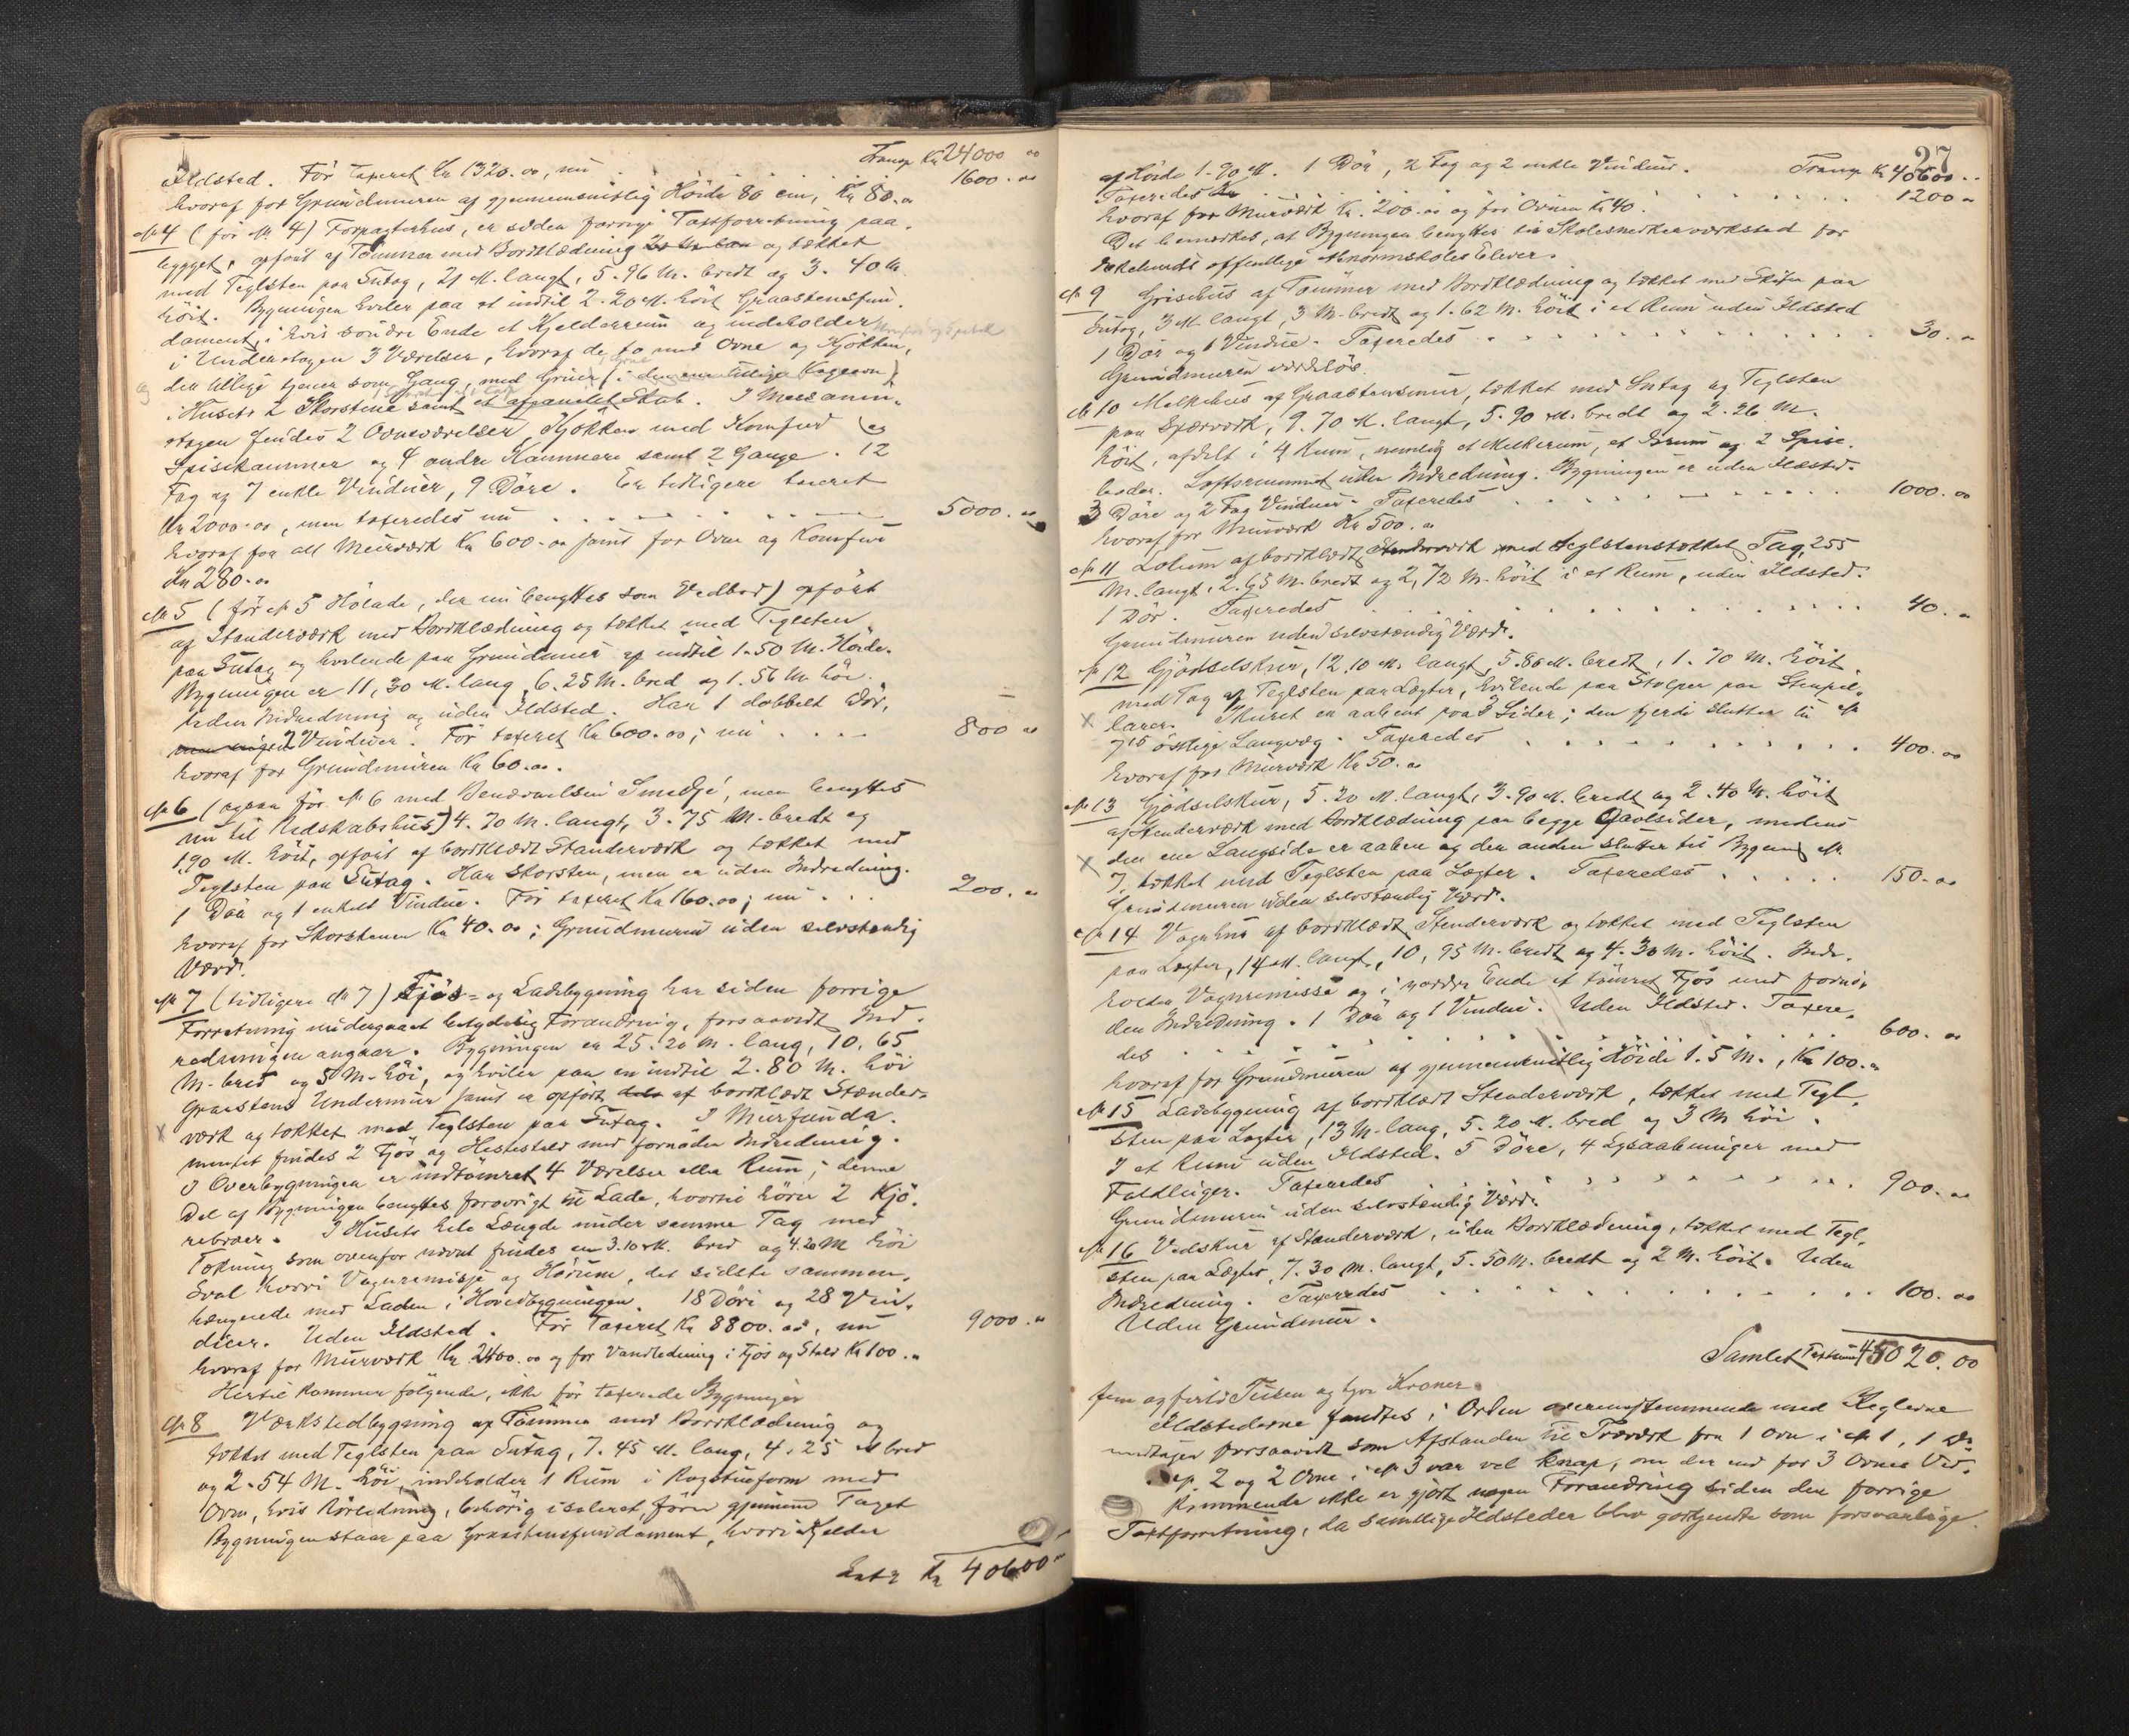 Transp Kr 24000 00
Ildsted. Før taxeret Kr 1320.00, nu . . . 1600.00
hvoraf for Grundmuren af gjennemsnitlig Höide 80 cm, Kr 80.00
№ 4 (før № 4) Forpagterhus, er siden forrige Taxtforretning paa-
bygget, opført af Tømmer med Bordklædning og tækket
med Teglsten paa Sutag, 21 M. langt, 5.96 M. bredt og 3.40 M.
höit. Bygningen hviler paa et indtil 2.20 M. höit Graastensfun-
dament, i hvis søndre Ende et Kjelderrum og indeholder
i Underetagen 3 Værelser, hvoraf de to med Ovne og Kjökken,
den tillige tjener som Gang, med Grue (i den ene tillige Kogeovn)
i Husets 2 Skorstene samt et afpanelet Skab. I Messanin-
etagen findes 2 Ovnsværelser, Kjökken med Komfur og
Spisekammer og 4 andre Kammere samt 2 Gange. 12
Fag og 7 enkle Vinduer, 9 Döre. Er tidligere taxeret
Kr 2000.00, men taxeredes nu . . . 5000.00
hvoraf for alt Murværk Kr 600.00 samt for Ovne og Komfur
Kr 280.00
№ 5 (før № 5 Hölade, der nu benyttes som Vedbod) opført
af Stenderværk med Bordklædning og tækket med Teglsten
paa Sutag og hvilende paa Grundmur af indtil 1.50 M. Höide.
Bygningen er 11,30 M. lang, 6.25 M. bred og 1.56 M. höi.
Uden Indredning og uden Ildsted. Har 1 dobbelt Dör,
2 Vinduer. Før taxeret Kr 600.00; nu . . . . 800 00
hvoraf for Grundmuren Kr 60.00.
№ 6 (ogsaa før № 6 med Benævnelsen Smedje, men benyttes
nu til Redskabshus) 4.70 M. langt, 3.75 M. bredt og
1,90 M. höit, opført af bordklædt Stenderværk og tækket med
Teglsten paa Sutag. Har Skorsten, men er uden Indredning.
1 Dör og 1 enkelt Vindue. Før taxeret Kr 160.00; nu . . . 200.00
hvoraf for Skorstenen Kr 40.00; Grundmuren uden selvstændig
Værd.
№ 7 (tidligere № 7) Fjös- og Ladebygning har siden forrige
Forretning undergaaet betydelig Forandring, forsaavidt Ind-
redningen angaar. Bygningen er 25.20 M. lang, 10,65
M. bred og 5 M. höi, og hviler paa en indtil 2.80 M. höi
Graastens Undermur samt er opført af bordklædt Stænder-
værk og tækket med Teglsten paa Sutag. I Murfunda-
mentet findes 2 Fjös og Hestestald med fornöden Indredning.
I Overbygningen er indtömret 4 Værelser eller Rum; denne
Del af Bygningen benyttes forøvrigt til Lade, hvortil hörer 2 Kjö-
rebroer. I Husets hele Længde under samme Tag med
Tækning som ovenfor nævnt findes en 3.10 M. bred og 4.20 M höi
Sval hvori Vognremisse og Hörum, det sidste sammen-
hængende med Laden i Hovedbygningen. 18 Döre og 28 Vin-
duer. Uden Ildsted. Før taxeret Kr 8800.00, nu 9000.00
hvoraf for Murværk Kr 2400.00 og for Vandledning i Fjös og Stald Kr 100.00
Hertil kommer fölgende, ikke før taxerede Bygninger
№ 8 Værkstedbygning af Tömmer med Bordklædning og
tækket med Teglsten paa Sutag, 7.45 M. lang, 4.25 M bred
og 2.54 M. höi, indeholder 1 Rum i Røgstueform med
Ovn, hvis Rörledning, behörig isoleret, förer gjennem Taget
Bygningen staar paa Graastensfundament, hvori Kjelder
Lat 2 Kr 40600 00
27
af Höide 1.90 M. 1 Dör, 2 Fag og 2 enkle Vinduer. Transp Kr 40600..
Taxeredes . . . 1200 00
hvoraf for Murværk Kr. 200.00 og for Ovnen Kr 40.
Det bemærkes, at Bygningen benyttes til Skolesnedkerværksted for
offentlige Abnormskoles Elever.
№ 9 Grisehus af Tömmer med Bordklædning og tækket med Skifer paa
Sutag, 3 M. langt, 3 M. bredt og 1.62 M. höit i et Rum uden Ildsted
1 Dör og 1 Vindue. Taxeredes . . . 30.00
Grundmuren værdilös.
№ 10 Melkehus af Graastensmur, tækket med Sutag og Teglsten
paa Sperværk, 9.70 M. langt, 5.90 M. bredt og 2.26 M.
höit, afdelt i 4 Rum, nemlig et Melkerum, et Isrum og 2 Spise-
boder. Loftsrummet uden Indredning. Bygningen er uden Ildsted.
3 Döre og 2 Fag Vinduer. Taxeredes . . . 1000.00
hvoraf for Murværk Kr 500.00
№ 11 Lokum af bordklædt Stenderværk med teglstenstækket Tag, 255
M. langt, 2.65 M. bredt og 2,72 M. höit i et Rum, uden Ildsted.
1 Dör. Taxeredes . . . 40.00
Grundmuren uden selvstændig Værd.
№ 12 Gjødselskur, 12.10 M. langt, 5.86 M. bredt, 1.70 M. höit
med Tag af Teglsten paa Lægter, hvilende paa Stolper paa Stenpil-
larer. Skuret er aabent paa 3 Sider; den fjerde slutter til №
7's östlige Langvæg. Taxeredes . . . 400.00
hvoraf for Murværk Kr 50.00
№ 13 Gjödselskur, 5.20 M. langt, 3.90 M. bredt og 2.40 M. höit
af Stenderværk med Bordklædning paa begge Gavlsider, medens
den ene Langside er aaben og den anden slutter til Bygning №
7, tækket med Teglsten paa Lægter. Taxeredes . . . 150.00
Grundmuren uden selvstændig Værd.
№ 14 Vognhus af bordklædt Stenderværk og tækket med Teglsten
paa Lægter, 14 M. langt, 10,95 M. bredt og 4.30 M. höit. Inde-
holder Vognremisse og i nordre Ende et tömret Fjös med fornö-
den Indredning. 1 Dör og 1 Vindue. Uden Ildsted. Taxere-
des . . . 600.00
hvoraf for Grundmuren af gjennemsnitlig Höide 1.5 M., Kr 100.00
№ 15 Ladebygning af bordklædt Stenderværk, tækket med Tegl-
sten paa Lægter, 13 M. lang, 5.20 M. bred og 3 M höi.
I et Rum uden Ildsted. 5 Döre, 4 Lysaabninger med
Faldluger. Taxeredes . . . 900.00
Grundmuren uden selvstændig Værd.
№ 16 Vedskur af Stenderværk, uden Bordklædning, tækket med Tegl-
sten paa Lægter, 7.30 M. langt, 5.50 M. bredt og 2 M. höit. Uden
Indredning. Taxeredes . . . 100.00
Uden Grundmur.
Samlet Taxtsum 45020.00
fem og firti Tusen og tyve Kroner.
Ildstederne fandtes i Orden overensstemmende med Reglerne
undtagen forsaavidt som Afstanden til Træværk fra 1 Ovn i № 1, 1 Do
i № 2 og 2 Ovne i № 3 var vel knap, om der end for 3 Ovnes Ved-
kommende ikke er gjort nogen Forandring siden den forrige
Taxtforretning, da samtlige Ildsteder blev godkjendte som forsvarlige.